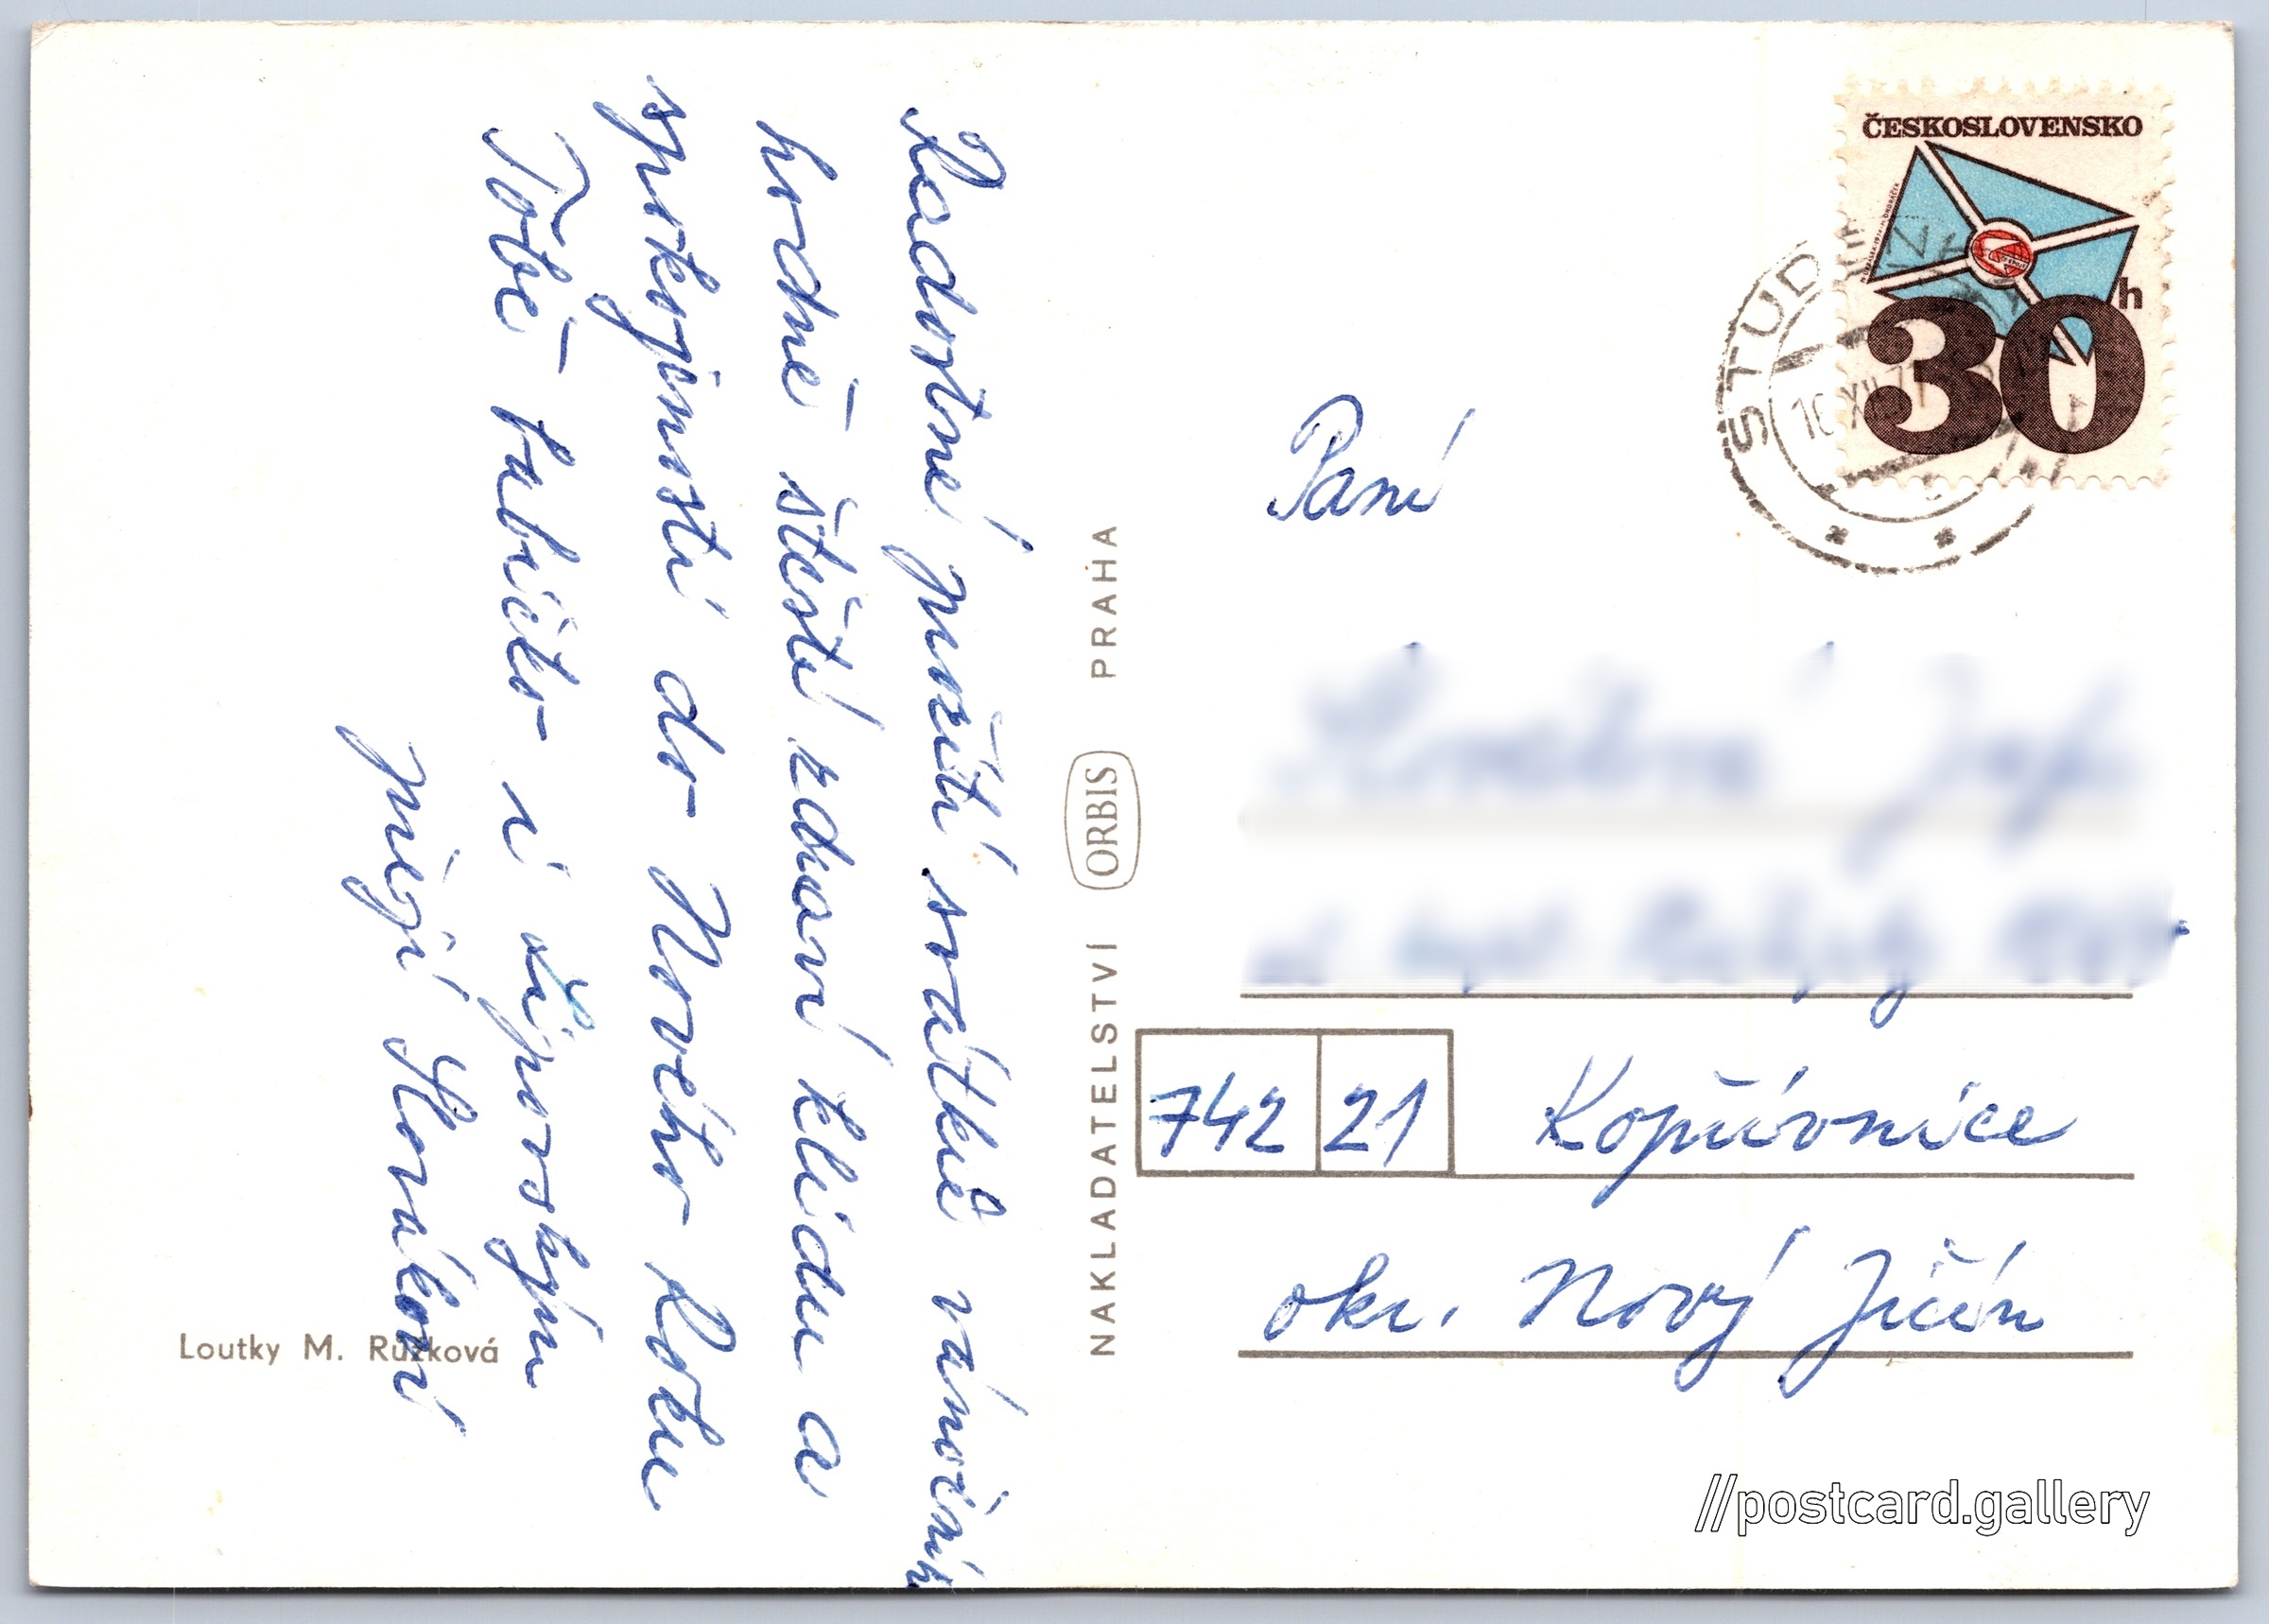 Radostné prožití svátků vánočních
hodně štěstí zdraví klidu a
spokojenosti do Nového Roku
Tobě tatíčko i vaším
přejí Horákovi
Loutky M. Růžková
NAKLADATELSTVÍ ORBIS PRAHA
ČESKOSLOVENSKO
30 h
STUD
Paní
742 21 Kopřivnice
okr. Nový Jičín
//postcard.gallery